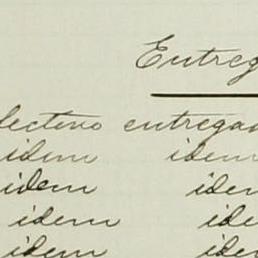 Entreg
lectivo entregad
idem idem
idem idem
idem ide
idem idem